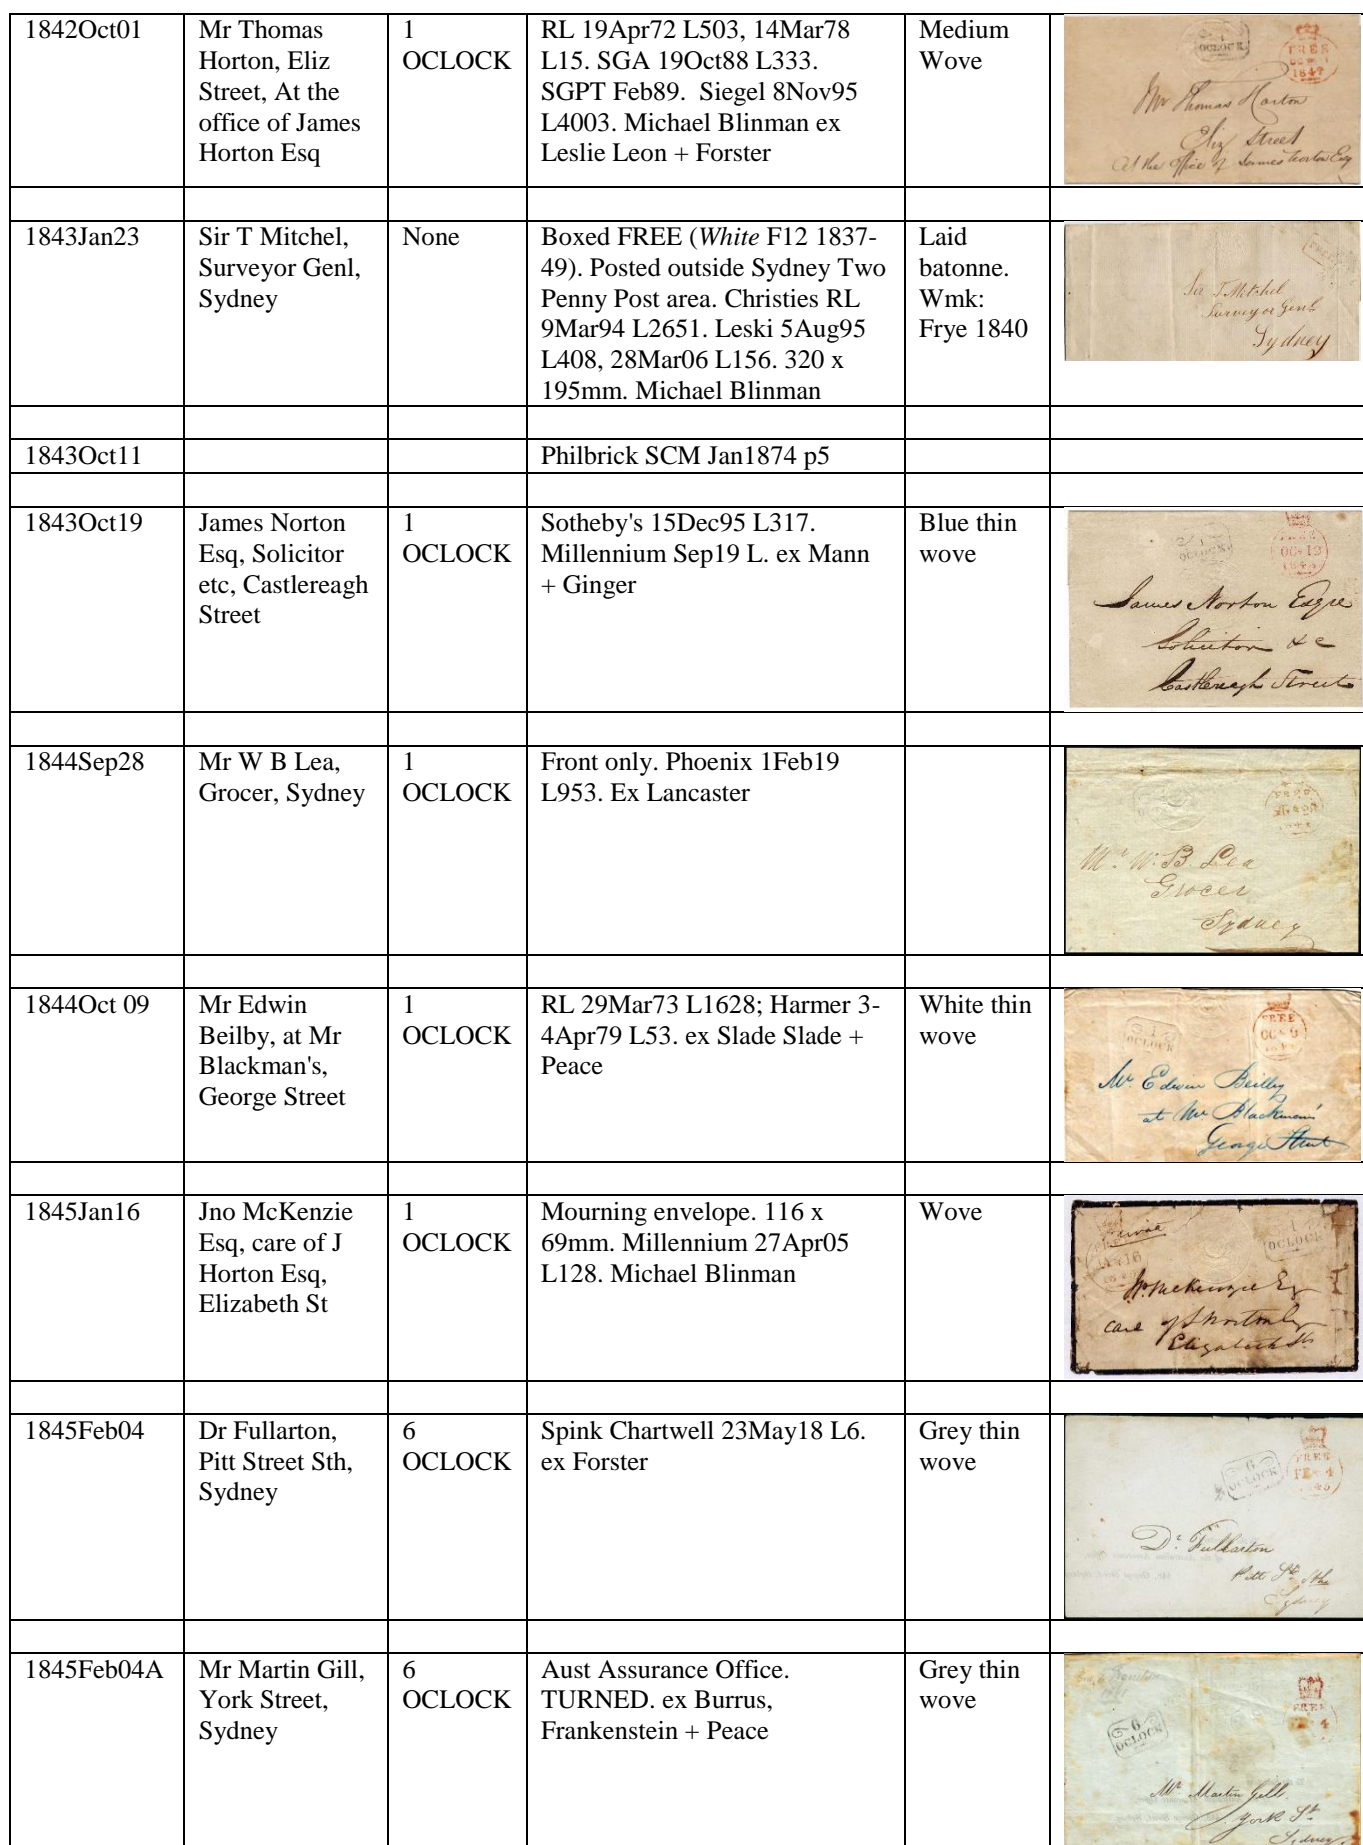 1842Oct01
Mr Thomas
Horton, Eliz
Street, At the
office of James
Horton Esq
1
OCLOCK
RL 19Apr72 L503, 14Mar78
L15. SGA 19Oct88 L333.
SGPT Feb89.  Siegel 8Nov95
L4003. Michael Blinman ex
Leslie Leon + Forster
Medium
Wove
OCLOCK
FREE
1847
Mr Thomas Horton
Eliz Street
At the office of James Horton Esq
1843Jan23
Sir T Mitchel,
Surveyor Genl,
Sydney
None
Boxed FREE (White F12 1837-
49). Posted outside Sydney Two
Penny Post area. Christies RL
9Mar94 L2651. Leski 5Aug95
L408, 28Mar06 L156. 320 x
195mm. Michael Blinman
Laid
batonne.
Wmk:
Frye 1840
FREE
Sir T Mitchel
Surveyor Genl
Sydney
1843Oct11
Philbrick SCM Jan1874 p5
1843Oct19
James Norton
Esq, Solicitor
etc, Castlereagh
Street
1
OCLOCK
Sotheby's 15Dec95 L317.
Millennium Sep19 L. ex Mann
+ Ginger
Blue thin
wove
1
OCLOCK
FREE
OC 19
James Norton Esqre
Solicitor &c
Castlereagh Street
1844Sep28
Mr W B Lea,
Grocer, Sydney
1
OCLOCK
Front only. Phoenix 1Feb19
L953. Ex Lancaster
FREE
Mr W. B. Lea
Grocer
Sydney
1844Oct 09
Mr Edwin
Beilby, at Mr
Blackman's,
George Street
1
OCLOCK
RL 29Mar73 L1628; Harmer 3-
4Apr79 L53. ex Slade Slade +
Peace
White thin
wove
1
OCLOCK
FREE
OC 9
Mr Edwin Beilby
at Mr Blackman's
George Street
1845Jan16
Jno McKenzie
Esq, care of J
Horton Esq,
Elizabeth St
1
OCLOCK
Mourning envelope. 116 x
69mm. Millennium 27Apr05
L128. Michael Blinman
Wove
Private
1
OCLOCK
16
Jno McKenzie Esq
care of J Norton Esq
Elizabeth St
1845Feb04
Dr Fullarton,
Pitt Street Sth,
Sydney
6
OCLOCK
Spink Chartwell 23May18 L6.
ex Forster
Grey thin
wove
6
OCLOCK
FREE
FE 4
1845
Dr Fullarton
Pitt St Sth
Sydney
1845Feb04A
Mr Martin Gill,
York Street,
Sydney
6
OCLOCK
Aust Assurance Office.
TURNED. ex Burrus,
Frankenstein + Peace
Grey thin
wove
6
OCLOCK
FREE
4
Mr Martin Gill
York St
Sydney